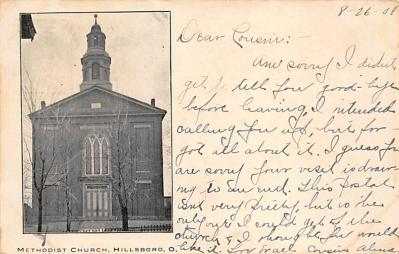 8-26-08
Dear Cousin:-
Am sorry I didn't
get to tell you good-bye
before leaving, I intended
calling you up, but for-
got all about it. I guess you
are sorry your visit is draw-
ing to an end. This postal
isnt very pretty, but is the
only one I could get of the
church & I thought you would
like it. Cousin Alma
METHODIST CHURCH, HILLSBORO, O.